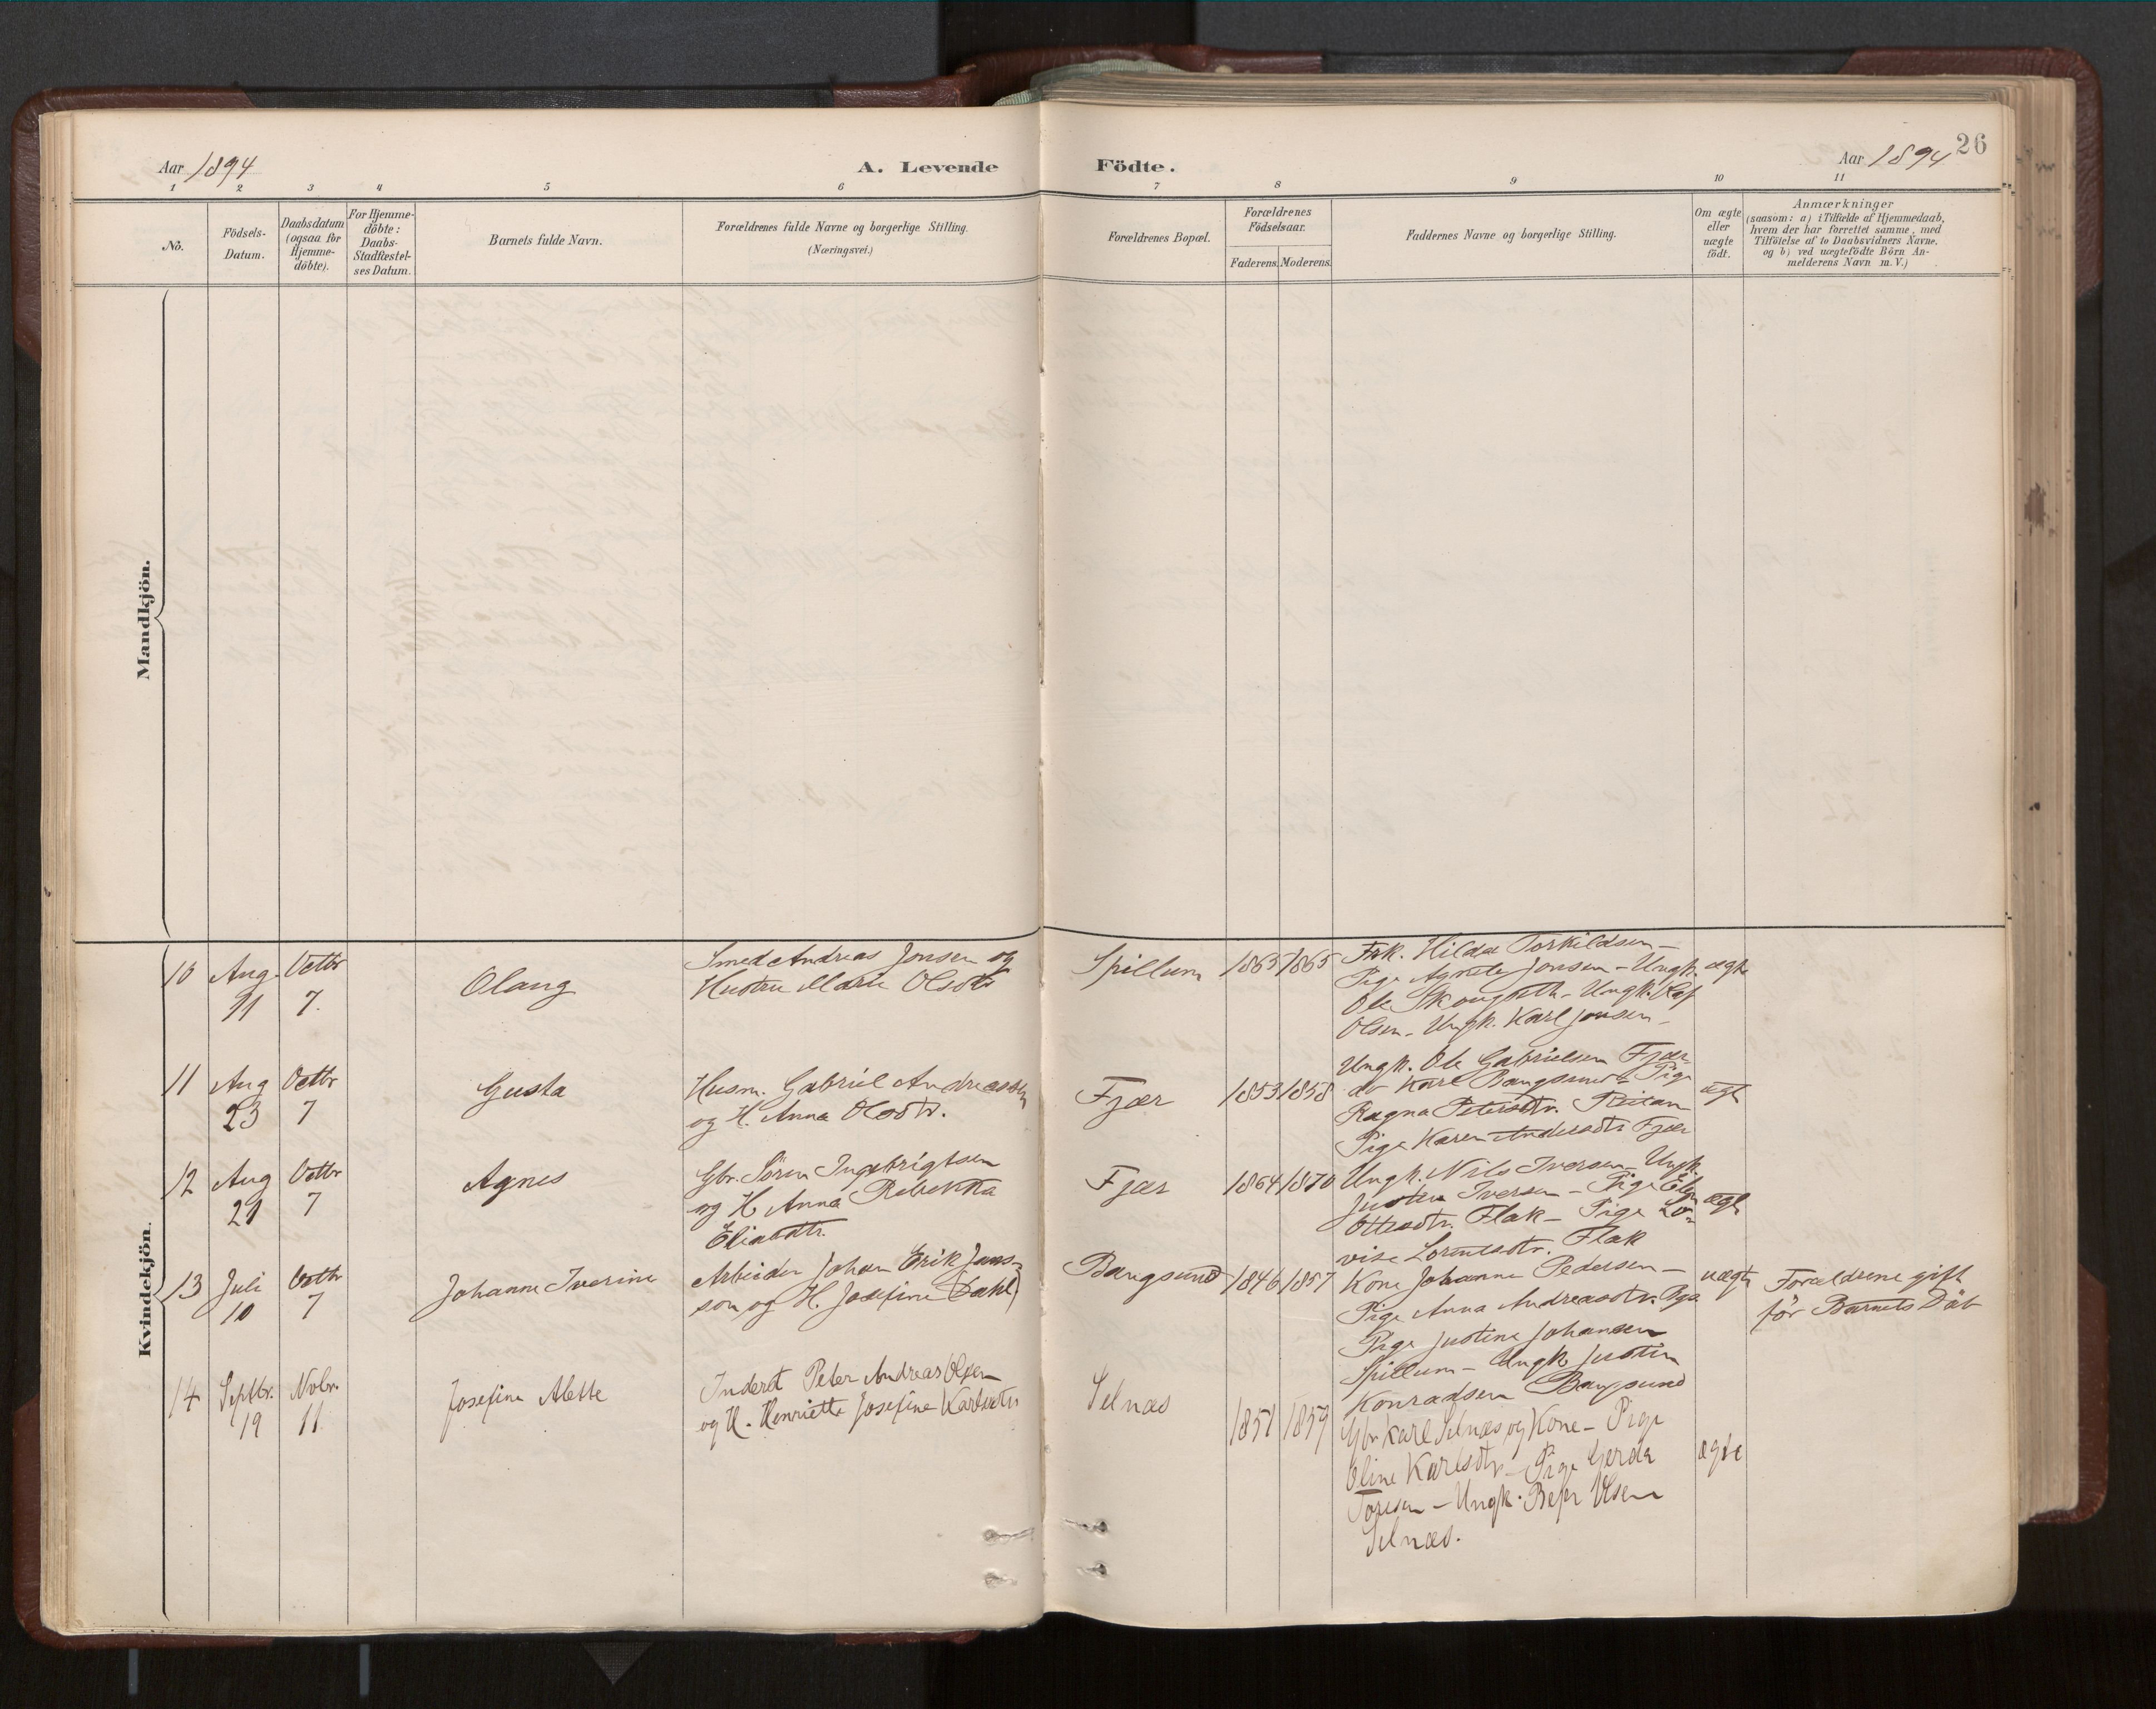 Aar 1894
A. Levende Födte.
Aar 1894
26
1 2 3 4 5 6 7 8 9 10 11
No.
Födsels-
Datum.
Daabsdatum
(ogsaa for
Hjemme-
döbte).
For Hjemme-
döbte:
Daabs-
Stadfestel-
ses Datum.
Barnets fulde Navn.
Forældrenes fulde Navne og borgerlige Stilling.
(Næringsvei.)
Forældrenes Bopæl.
Forældrenes
Födselsaar.
Faderens. Moderens.
Faddernes Navne og borgerlige Stilling.
Om ægte
eller
uægte
födt.
Anmærkninger
(saasom: a) i Tilfælde af Hjemmedaab,
hvem der har forrettet samme, med
Tilföielse af to Daabsvidners Navne,
og b) ved uægtefödte Börn An-
melderens Navn m. V.)
Mandkjön.
Kvindekjön.
10
Aug.
11
Octbr
7.
Olaug
Smed Andreas Jonsen og
Hustru Marie Olsdtr
Spillum
1863 1865
Frk. Hilda Torkildsen —
Pige Agnete Jonsen - Ungk.
Ole - Ungk. Olaf
Olsen - Ungk. Karl Jonsen -
ægte
11
Aug
23
Octbr
7
Gusta
Husm. Gabriel Andreassen
og H. Anna Olsdtr.
Fjær
1853 1858
Ungk. Ole Gabrielsen Fjær
do Karl Bangsund - Pige
Ragna Petersdtr. Reitan
Pige Karen Andersdtr Fjær
ægte
12
Aug
21
Octbr
7
Agnes
Gbr. Sören Ingebrigtsen
og H. Anna Rebekka
Eliasdtr.
Fjær
1864 1870
Ungk. Nils Iversen - Ungk.
Justin Iversen - Pige
Ottesdtr. Flak - Pige Lo-
vise Lorentsdtr. Flak
ægte
13
Juli
10
Octbr
7
Johanne Iverine
Arbeider Johan Erik Jans-
son og H. Josefine Dahl
Bangsund
1846 1857
Kone Johanna Pedersen —
Pige Anna Andreasdtr.
Pige Justine Johansen
Spillum - Ungk. Justin
Konradsen Bangsund
uægte
Forældrene gift
för Barnets Dåb
14
Septbr.
19
Nvbr.
11
Josefine Alette
Inderst Peter Andreas Olsen
og H. Henriette Josefine Karlsdtr
Selnæs
1851 1859
Gbr Karl Selnæs og Kone - Pige
Oline Karlsdtr - Pige Gerda
- Ungk. Olsen
Selnæs.
ægte